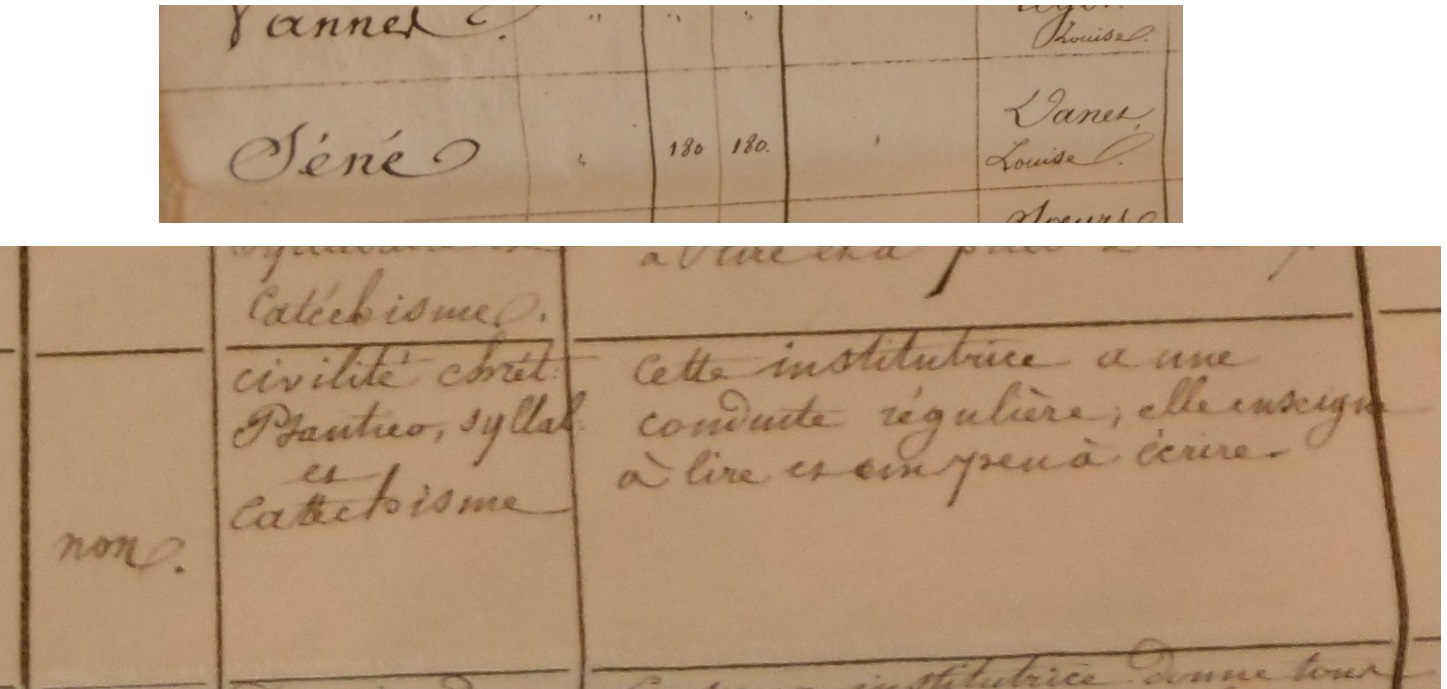 Vannes
" " "
Louise.
Séné " 180 180. '
Danet,
Louise.
Soeurs
Catéchisme.
civilité chrét.
Psautier, syllab.
et
Catéchisme
non.
Cette institutrice a une
conduite régulière, elle enseigne
à lire et un peu à écrire.
institutrice donne tous